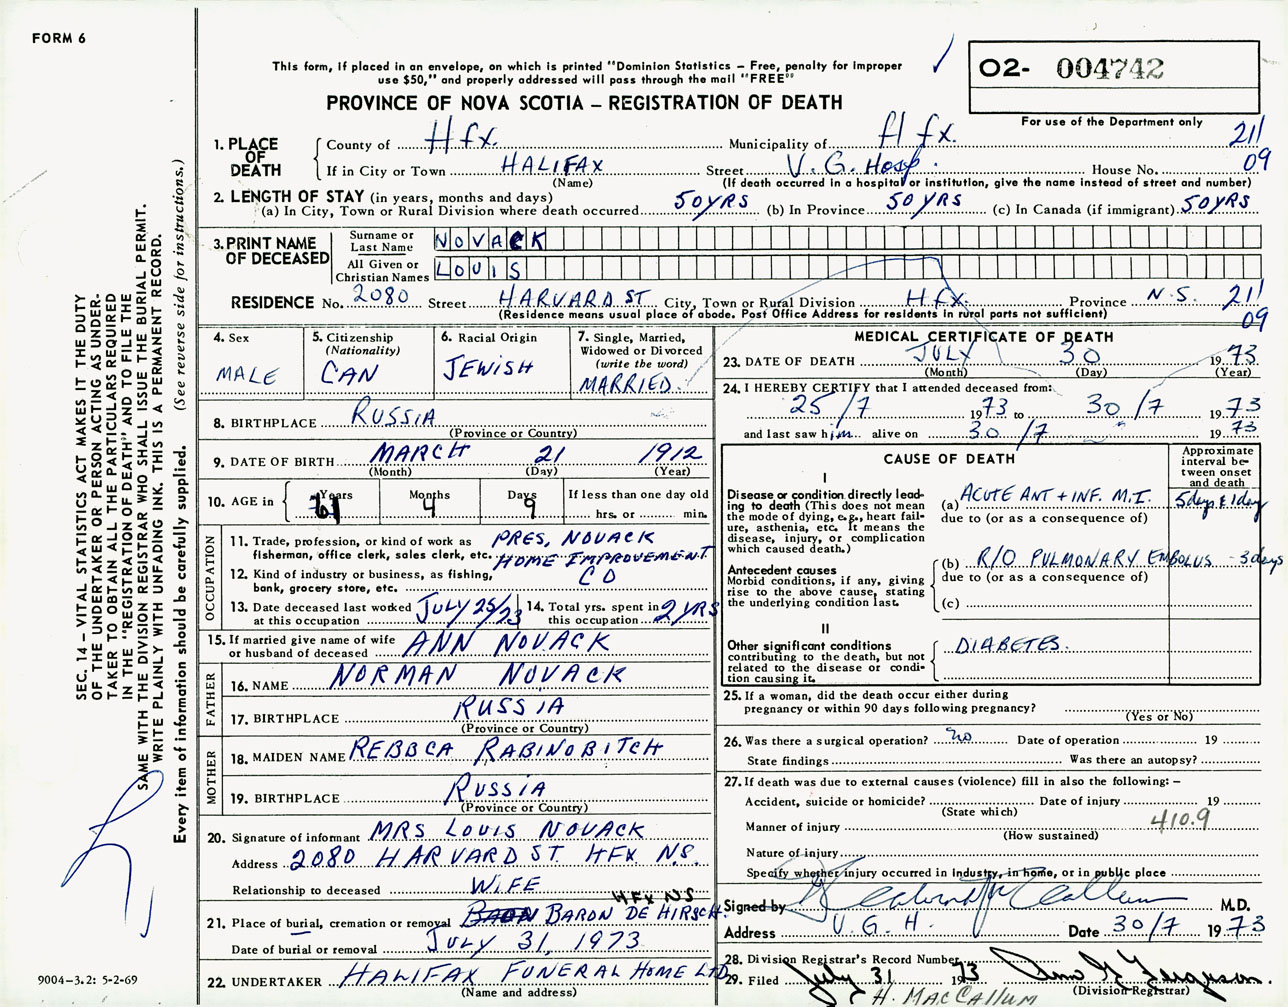 FORM 6
This form, if placed in an envelope, on which is printed "Dominion Statistics – Free, penalty for improper
use $50," and properly addressed will pass through the mail "FREE"
PROVINCE OF NOVA SCOTIA – REGISTRATION OF DEATH
02- 004742
For use of the Department only
1. PLACE OF DEATH
County of Hfx. Municipality of Hfx. 211
If in City or Town HALIFAX Street V. G. Hosp. House No. 09
(Name) (If death occurred in a hospital or institution, give the name instead of street and number)
2. LENGTH OF STAY (in years, months and days)
(a) In City, Town or Rural Division where death occurred 50 YRS (b) In Province 50 YRS (c) In Canada (if immigrant) 50 YRS
3. PRINT NAME OF DECEASED
Surname or Last Name NOVACK
All Given or Christian Names LOUIS
RESIDENCE No. 2080 Street HARVARD ST City, Town or Rural Division Hfx. Province N.S. 211
(Residence means usual place of abode. Post Office Address for residents in rural parts not sufficient) 09
4. Sex
MALE
5. Citizenship
(Nationality)
CAN
6. Racial Origin
JEWISH
7. Single, Married,
Widowed or Divorced
(write the word)
MARRIED.
8. BIRTHPLACE RUSSIA
(Province or Country)
9. DATE OF BIRTH MARCH 21 1912
(Month) (Day) (Year)
10. AGE in Years Months Days If less than one day old
61 4 9 hrs. or min.
OCCUPATION
11. Trade, profession, or kind of work as PRES, NOVACK
fisherman, office clerk, sales clerk, etc. HOME IMPROVEMENT
12. Kind of industry or business, as fishing, CO
bank, grocery store, etc.
13. Date deceased last worked at this occupation JULY 25/23
14. Total yrs. spent in this occupation 2 YRS
15. If married give name of wife
or husband of deceased ANN NOVACK
FATHER
16. NAME NORMAN NOVACK
17. BIRTHPLACE RUSSIA
(Province or Country)
MOTHER
18. MAIDEN NAME REBBCA RABINOBITCH
19. BIRTHPLACE RUSSIA
(Province or Country)
20. Signature of informant MRS LOUIS NOVACK
Address 2080 HARVARD ST HFX N.S.
Relationship to deceased WIFE
HFX NS
21. Place of burial, cremation or removal BARON DE HIRSCH.
Date of burial or removal JULY 31, 1973
22. UNDERTAKER HALIFAX FUNERAL HOME LTD
(Name and address)
MEDICAL CERTIFICATE OF DEATH
23. DATE OF DEATH JULY 30 1973
(Month) (Day) (Year)
24. I HEREBY CERTIFY that I attended deceased from:
25/7 1973 to 30/7 1973
and last saw him alive on 30/7 1973
CAUSE OF DEATH
Approximate
interval be-
tween onset
and death
I
Disease or condition directly lead-
ing to death (This does not mean
the mode of dying, e.g., heart fail-
ure, asthenia, etc. It means the
disease, injury, or complication
which caused death.)
(a) ACUTE ANT + INF. M.I. 5 days & 1 day
due to (or as a consequence of)
Antecedent causes
Morbid conditions, if any, giving
rise to the above cause, stating
the underlying condition last.
(b) R/O PULMONARY EMBOLUS - 3 days
due to (or as a consequence of)
(c)
II
Other significant conditions
contributing to the death, but not
related to the disease or condi-
tion causing it.
DIABETES.
25. If a woman, did the death occur either during
pregnancy or within 90 days following pregnancy?
(Yes or No)
26. Was there a surgical operation? no Date of operation 19
State findings Was there an autopsy?
27. If death was due to external causes (violence) fill in also the following: –
Accident, suicide or homicide? Date of injury 19
(State which)
Manner of injury 410.9
(How sustained)
Nature of injury
Specify whether injury occurred in Industry, in home, or in public place
Signed by M.D.
Address V. G. H. Date 30/7 1973
28. Division Registrar's Record Number
29. Filed July 31 1973
(Division Registrar)
H. MACCALLUM
SEC. 14 – VITAL STATISTICS ACT MAKES IT THE DUTY
OF THE UNDERTAKER OR PERSON ACTING AS UNDER-
TAKER TO OBTAIN ALL THE PARTICULARS REQUIRED
IN THE "REGISTRATION OF DEATH" AND TO FILE THE
SAME WITH THE DIVISION REGISTRAR WHO SHALL ISSUE THE BURIAL PERMIT.
WRITE PLAINLY WITH UNFADING INK. THIS IS A PERMANENT RECORD.
Every item of information should be carefully supplied. (See reverse side for instructions.)
9004–3.2: 5-2-69